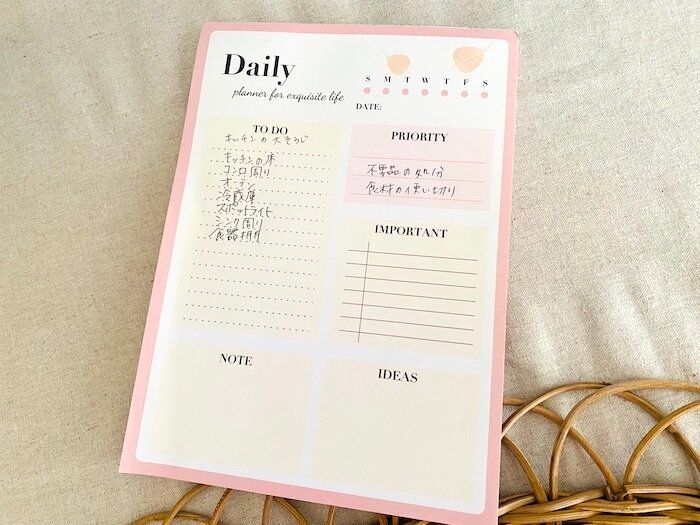 Daily
planner for exquisite life
S M T W T F S
DATE:
TO DO
キッチンの大そうじ
キッチンの床
コンロ周り
オーブン
冷蔵庫
スポットライト
シンク周り
食器棚
PRIORITY
不要品の処分
食材の使い切り
IMPORTANT
NOTE
IDEAS